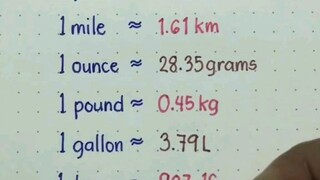 1 mile ≈ 1.61 km
1 ounce ≈ 28.35 grams
1 pound ≈ 0.45 kg
1 gallon ≈ 3.79 L